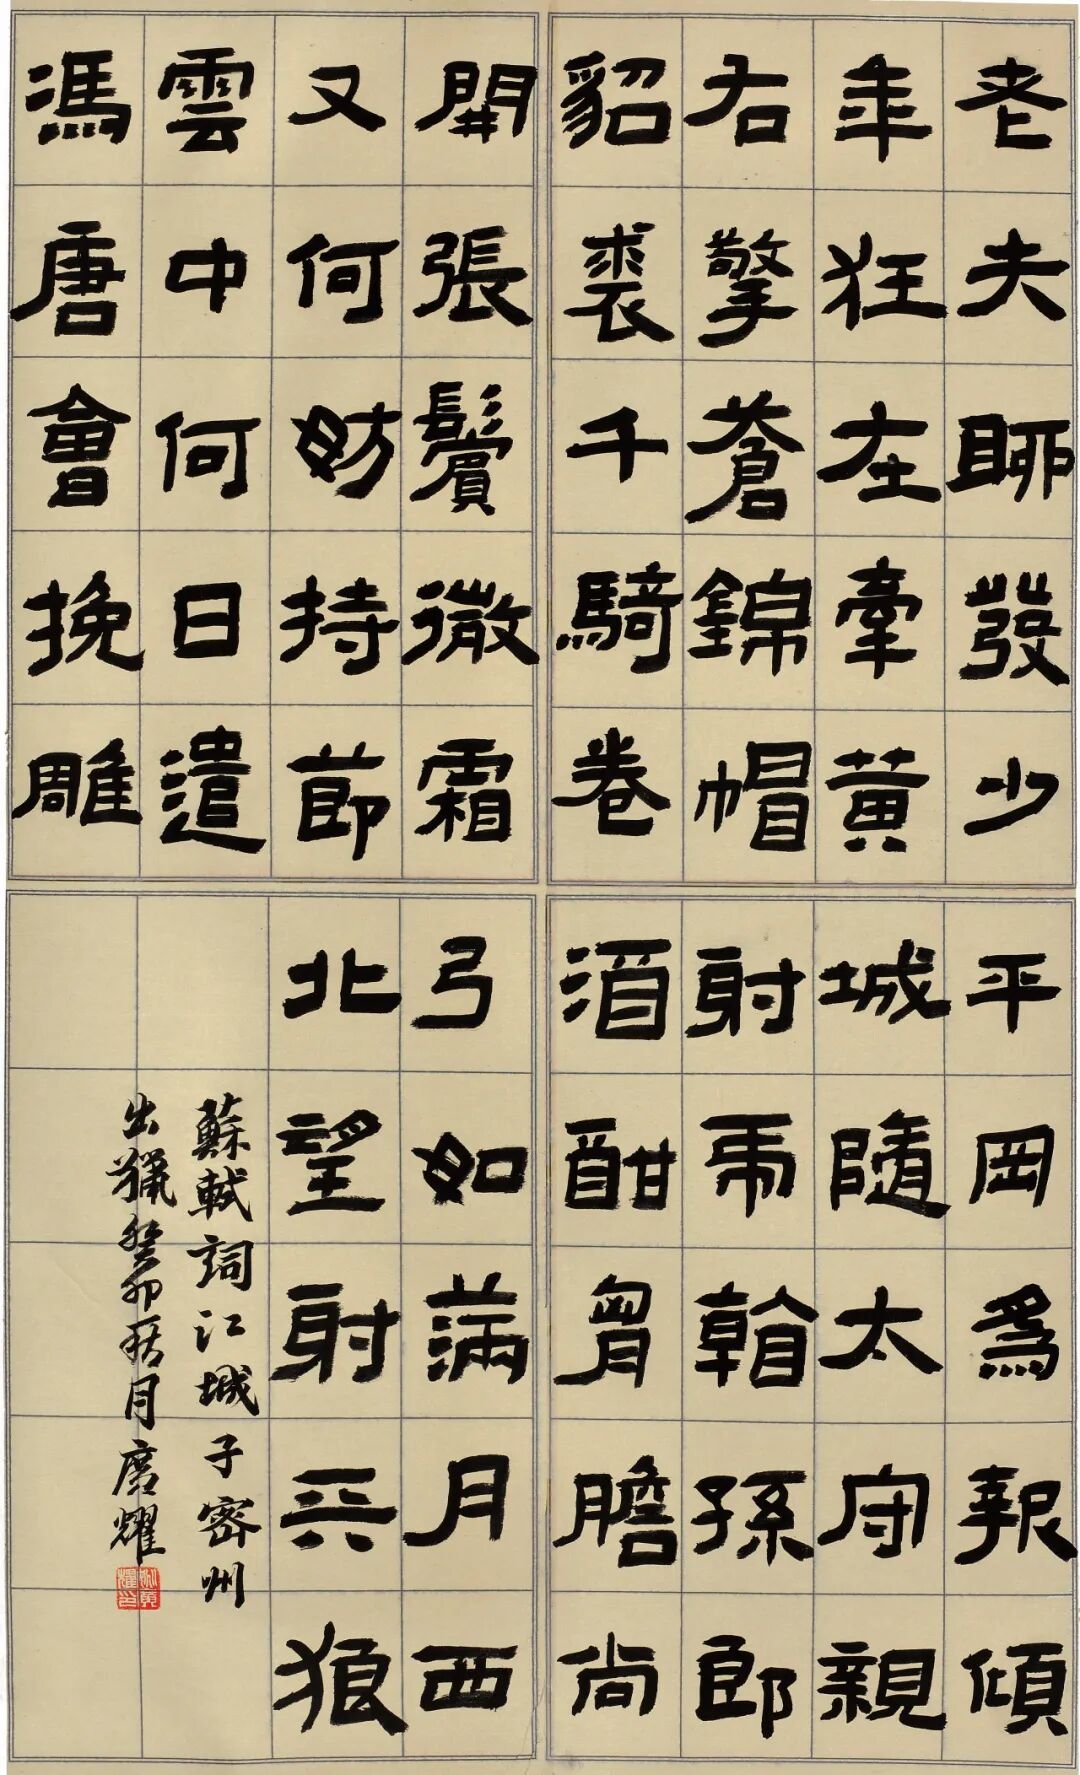 老夫聊發少
年狂左牽黃
右擎蒼錦帽
貂裘千騎卷
平岡爲報傾
城隨太守親
射虎看孫郎
酒酣胷膽尚
開張鬢微霜
又何妨持節
雲中何日遣
馮唐會挽雕
弓如滿月西
北望射天狼
蘇軾詞江城子密州
出獵癸卯月廣耀